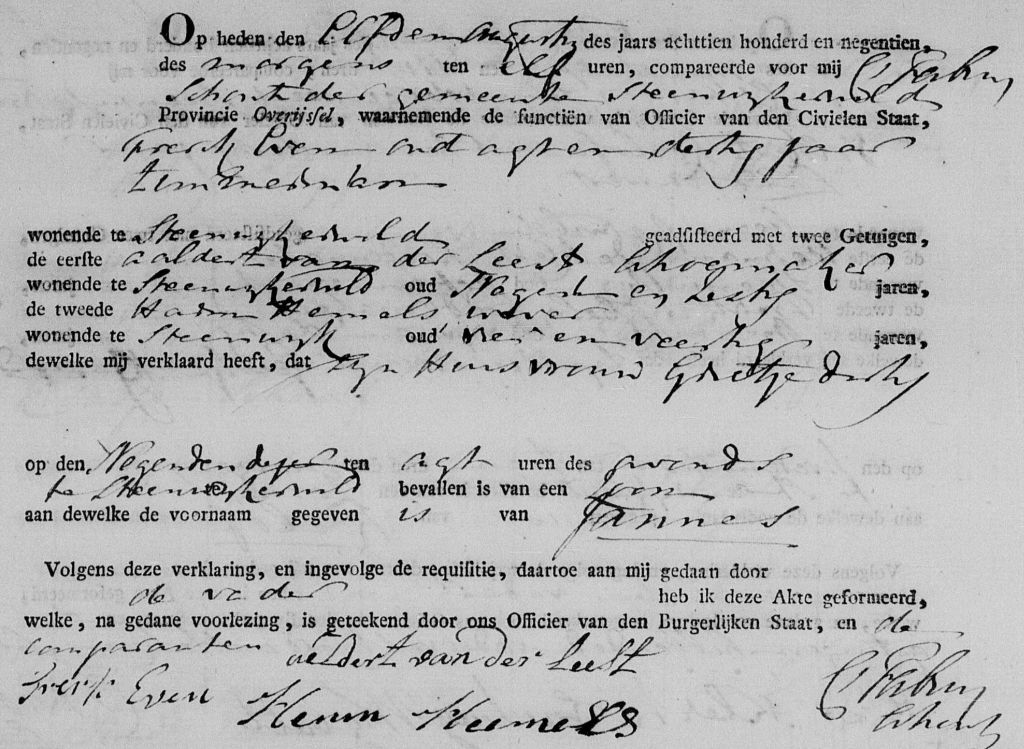 Op heden den Elfden Augusty des jaars achttien honderd en negentien,
des morgens ten elf uren, compareerde voor mij
Schout der gemeente Steenwykerwold
Provincie Overijssel, waarnemende de functiën van Officier van den Civielen Staat,
Frerk Even oud agt en dertig jaar
timmerman
wonende te Steenwykerwold geadsisteerd met twee Getuigen,
de eerste aaldert van der Leest Schoemaker
wonende te Steenwykerwold oud Negen en jaren,
de tweede Harm Hemels wever
wonende te Steenwyk oud vier en veertig jaren,
dewelke mij verklaard heeft, dat zyn Huisvrouw Grietje
op den Negenden dezer ten agt uren des avonds
te Steenwykerwold bevallen is van een Zoon
aan dewelke de voornaam gegeven is van Jannes
Volgens deze verklaring, en ingevolge de requisitie, daartoe aan mij gedaan door
de vader heb ik deze Akte geformeerd,
welke, na gedane voorlezing, is geteekend door ons Officier van den Burgerlijken Staat, en de
comparanten aeldert van der Leest
Frerk Even
Harm Heemels
Schout